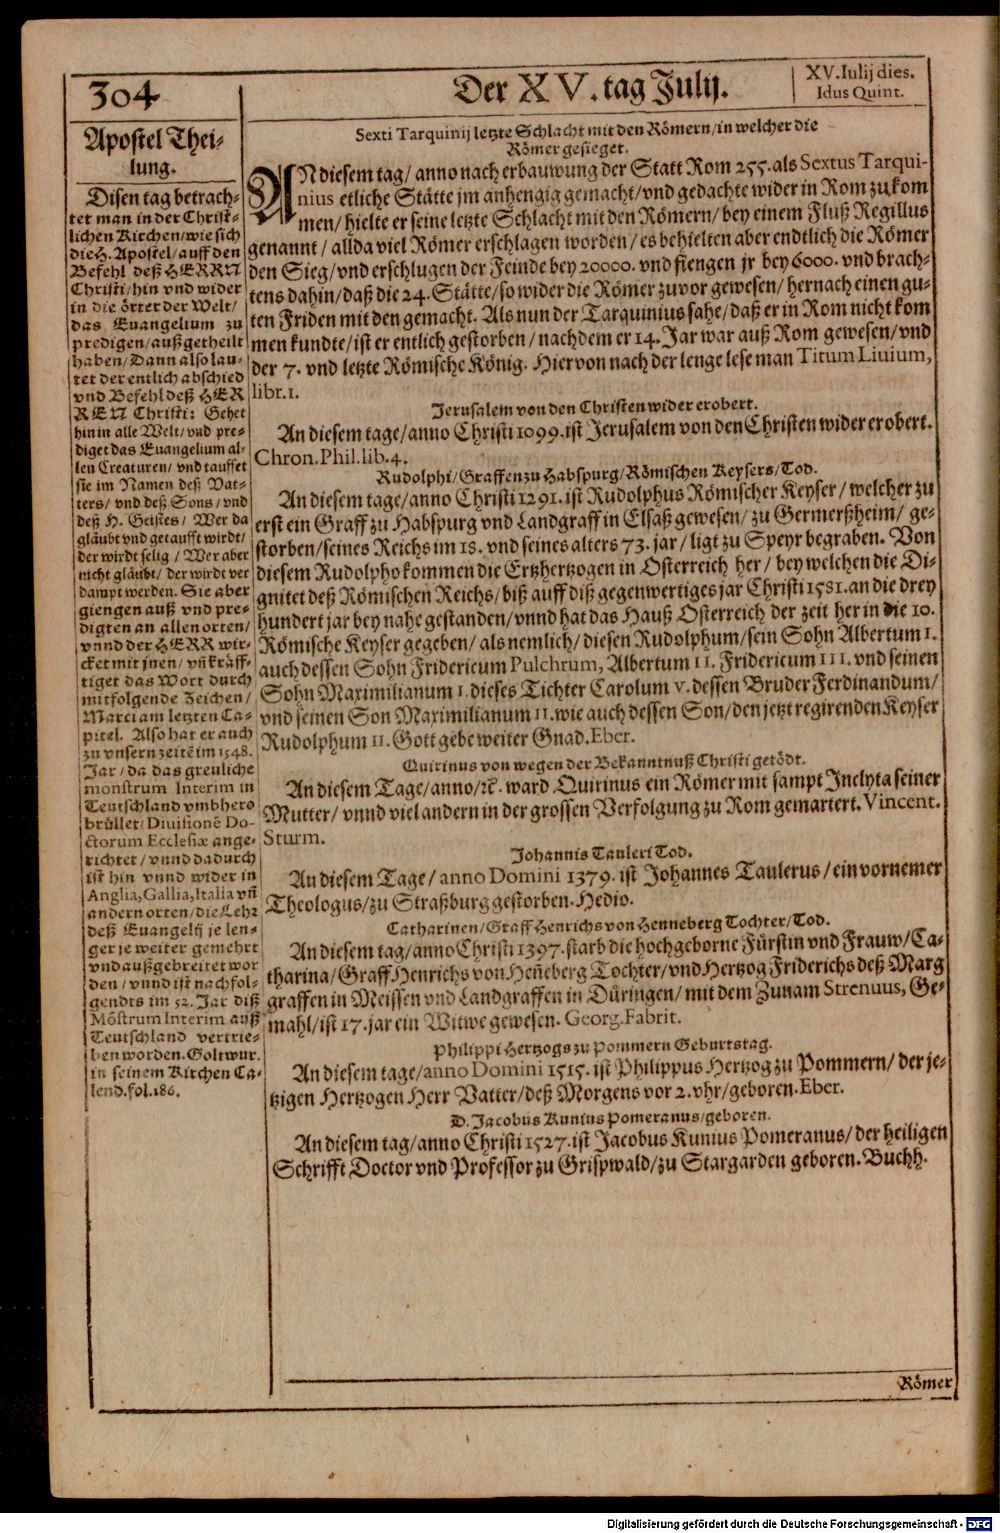 304
Der XV. tag Julij.
XV. Iulij dies.
Idus Quint.
Apostel Thei-
lung.
Disen tag betrach-
tet man in der Christ-
lichen Kirchen/wie sich
die H. Apostel/auff den
Befehl deß HERRN
Christi/hin vnd wider
in die örter der Welt/
das Euangelium zu
predigen/außgetheilt
haben/Dann also lau-
tet der entlich abschied
vnd Befehl deß HER
REN Christi: Gehet
hin in alle Welt/vnd pre-
diget das Euangelium al-
len Creaturen/vnd tauffet
sie im Namen deß Vat-
ters/vnd deß Sons/vnd
deß H. Geistes/Wer da
gläubt vnd getaufft wirdt/
der wirdt selig/Wer aber
nicht gläubt/der wirdt ver
dampt werden. Sie aber
giengen auß vnd pre-
digten an allen orten/
vnnd der HERR wir-
cket mit jnen/vñ kräff-
tiget das Wort durch
mitfolgende Zeichen/
Marci am letzten Ca-
pitel. Also hat er auch
zu vnsern zeitẽ im 1548.
Jar/da das greuliche
monstrum Interim in
Teutschland vmbhero
brüllet/Diuisionẽ Do-
ctorum Ecclesiæ ange-
richtet/vnnd dadurch
ist hin vnnd wider in
Anglia, Gallia, Italia vñ
andern orten/die Lehr
deß Euangelij je len-
ger je weiter gemehrt
vnd außgebreitet wor
den/vnnd ist nachfol-
gendts im 52. Jar diß
Mõstrum Interim auß
Teutschland vertrie-
ben worden. Goltwur.
in seinem Kirchen Ca-
lend. fol. 186.
Sexti Tarquinij letzte Schlacht mit den Römern/in welcher die
Römer gesieget.
AN diesem tag/anno nach erbauwung der Statt Rom 255. als Sextus Tarqui-
nius etliche Stätte jm anhengig gemacht/vnd gedachte wider in Rom zu kom
men/hielte er seine letzte Schlacht mit den Römern/bey einem Fluß Regillus
genannt/allda viel Römer erschlagen worden/es behielten aber endtlich die Römer
den Sieg/vnd erschlugen der Feinde bey 20000. vnd fiengen jr bey 6000. vnd brach-
tens dahin/daß die 24. Stätte/so wider die Römer zuvor gewesen/hernach einen gu-
ten Friden mit den gemacht. Als nun der Tarquinius sahe/daß er in Rom nicht kom
men kundte/ist er entlich gestorben/nachdem er 14. Jar war auß Rom gewesen/vnd
der 7. vnd letzte Römische König. Hiervon nach der lenge lese man Titum Liuium,
libr. 1.
Jerusalem von den Christen wider erobert.
An diesem tage/anno Christi 1099. ist Jerusalem von den Christen wider erobert.
Chron. Phil. lib. 4.
Rudolphi/Graffen zu Habspurg/Römischen Keysers/Tod.
An diesem tage/anno Christi 1291. ist Rudolphus Römischer Keyser/welcher zu
erst ein Graff zu Habspurg vnd Landgraff in Elsaß gewesen/zu Germerßheim/ge-
storben/seines Reichs im 18. vnd seines alters 73. jar/ligt zu Speyr begraben. Von
diesem Rudolpho kommen die Ertzhertzogen in Osterreich her/bey welchen die Di-
gnitet deß Römischen Reichs/biß auff diß gegenwertiges jar Christi 1581. an die drey
hundert jar bey nahe gestanden/vnnd hat das Hauß Osterreich der zeit her in die 10.
Römische Keyser gegeben/als nemlich/diesen Rudolphum/sein Sohn Albertum I.
auch dessen Sohn Fridericum Pulchrum, Albertum II. Fridericum III. vnd seinen
Sohn Maximilianum I. dieses Tichter Carolum V. dessen Bruder Ferdinandum/
vnd seinen Son Maximilianum II. wie auch dessen Son/den jetzt regirenden Keyser
Rudolphum II. Gott gebe weiter Gnad. Eber.
Quirinus von wegen der Bekanntnuß Christi getödt.
An diesem Tage/anno/ꝛc. ward Quirinus ein Römer mit sampt Inclyta seiner
Mutter/vnnd viel andern in der grossen Verfolgung zu Rom gemartert. Vincent.
Sturm.
Johannis Tauleri Tod.
An diesem Tage/anno Domini 1379. ist Johannes Taulerus/ein vornemer
Theologus/zu Straßburg gestorben. Hedio.
Catharinen/Graff Henrichs von Henneberg Tochter/Tod.
An diesem tag/anno Christi 1397. starb die hochgeborne Fürstin vnd Frauw/Ca-
tharina/Graff Henrichs von Heñeberg Tochter/vnd Hertzog Friderichs deß Marg
graffen in Meissen vnd Landgraffen in Düringen/mit dem Zunam Strenuus, Ge-
mahl/ist 17. jar ein Witwe gewesen. Georg. Fabrit.
Philippi Hertzogs zu Pommern Geburtstag.
An diesem tage/anno Domini 1515. ist Philippus Hertzog zu Pommern/der je-
tzigen Hertzogen Herr Vatter/deß Morgens vor 2. vhr/geboren. Eber.
D. Jacobus Kunius Pomeranus/geboren.
An diesem tag/anno Christi 1527. ist Jacobus Kunius Pomeranus/der heiligen
Schrifft Doctor vnd Professor zu Gripswald/zu Stargarden geboren. Buchh.
Römer
Digitalisierung gefördert durch die Deutsche Forschungsgemeinschaft - DFG